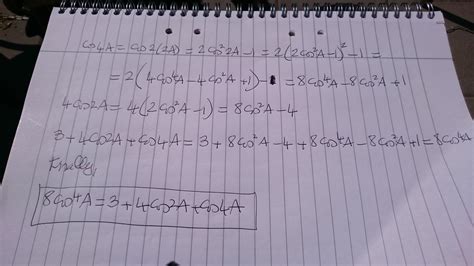 Co4A = Co2(2A) = 2Co²2A-1 = 2(2Co²A-1)²-1 =
= 2(4Co⁴A-4Co²A+1)-1 = 8Co⁴A-8Co²A+1
4Co2A = 4(2Co²A-1) = 8Co²A-4
3+4Co2A+Co4A = 3+8Co²A-4+8Co⁴A-8Co²A+1 = 8Co⁴A
Finally,
8Co⁴A = 3+4Co2A+Co4A